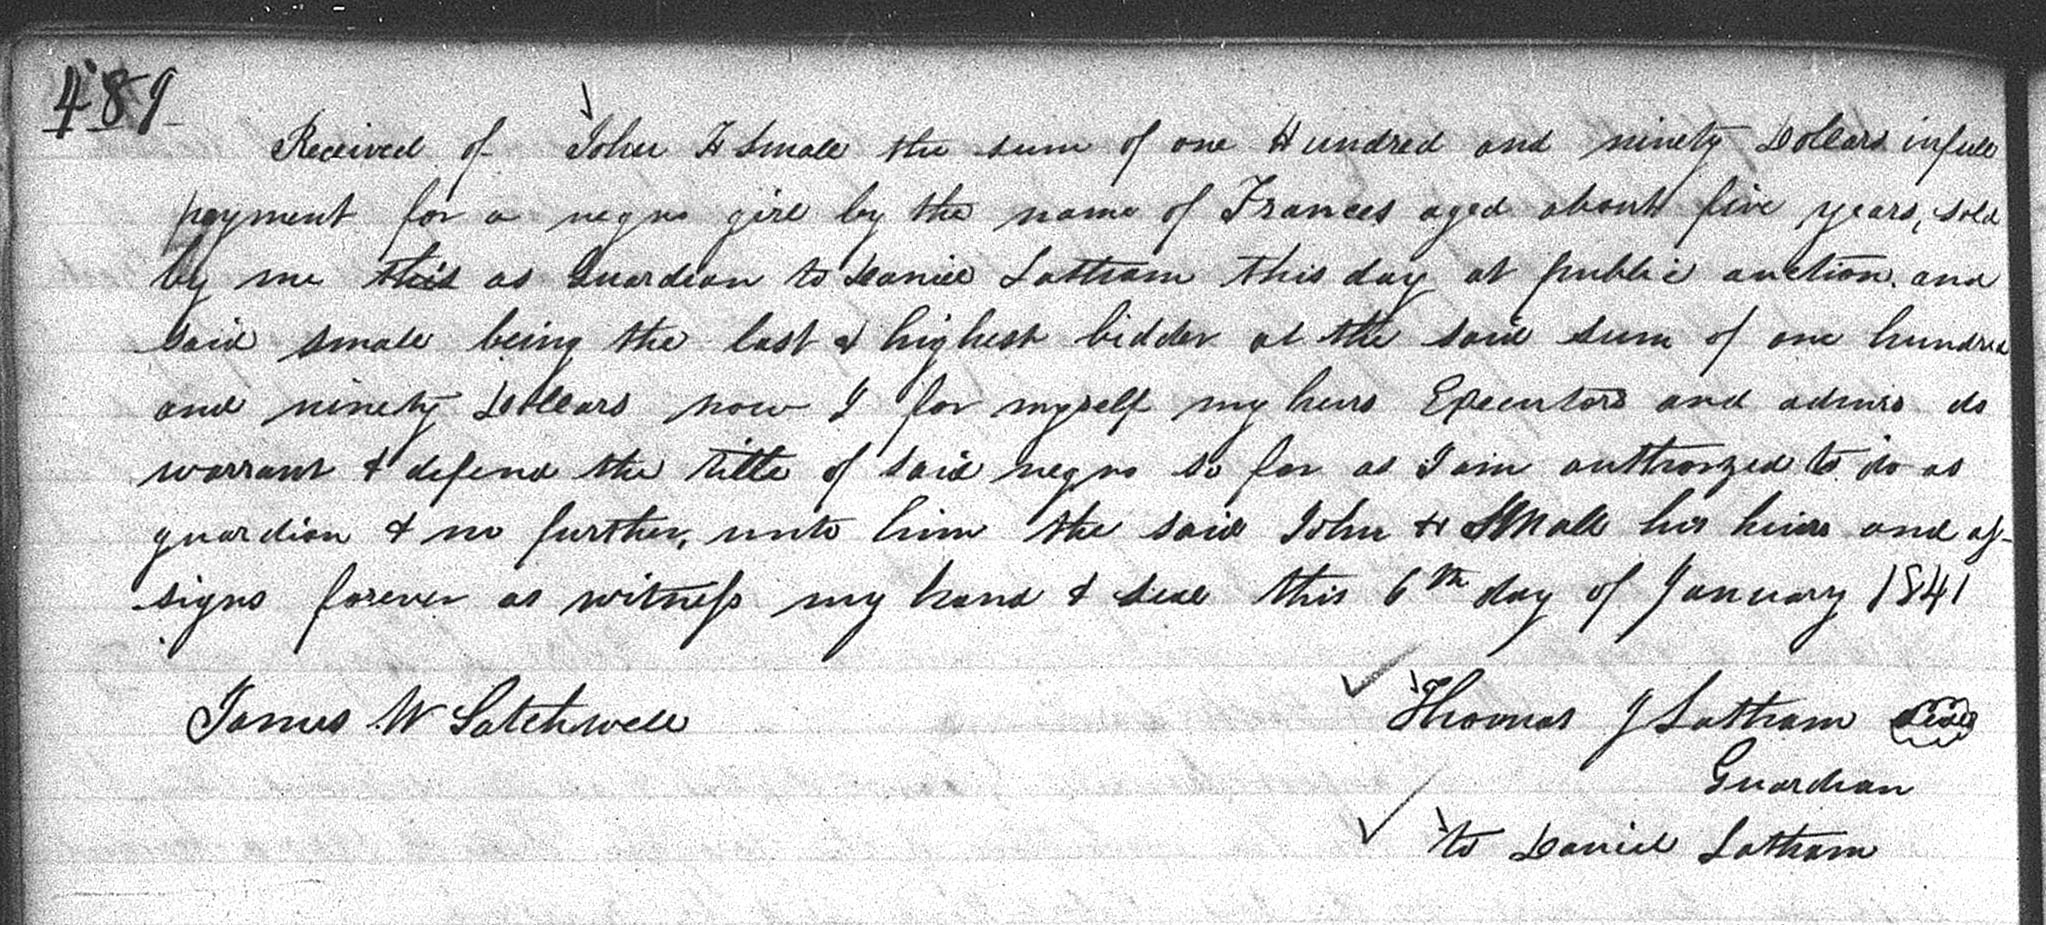 489
Received of John H Small the sum of one Hundred and ninety Dollars in full
payment for a negro girl by the name of Frances aged about five years, sold
by me this as Guardian to Daniel Latham this day at public auction. and
said Small being the last & highest bidder at the said sum of one hundred
and ninety Dollars now I for myself my heirs Executors and admrs do
warrant & defend the title of said negro so far as I am authorized to do as
guardian & no further, unto him the said John H Small his heirs and as-
signs forever as witness my hand & seal this 6th day of January 1841
James W Satchwell Thomas J Latham Seal
Guardian
to Daniel Latham